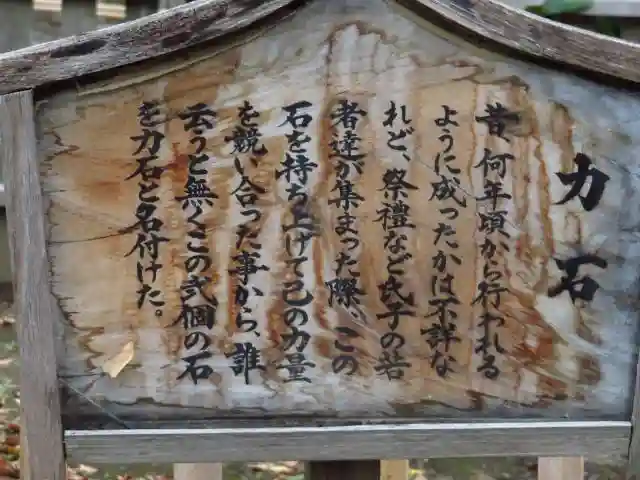 力石
昔、何年頃から行われる
ように成ったかは不詳な
れど、祭禮など氏子の若
者達が集まった際、この
石を持ち上げて己の力量
を競い合った事から、誰
云うと無くこの弐個の石
を力石と名付けた。